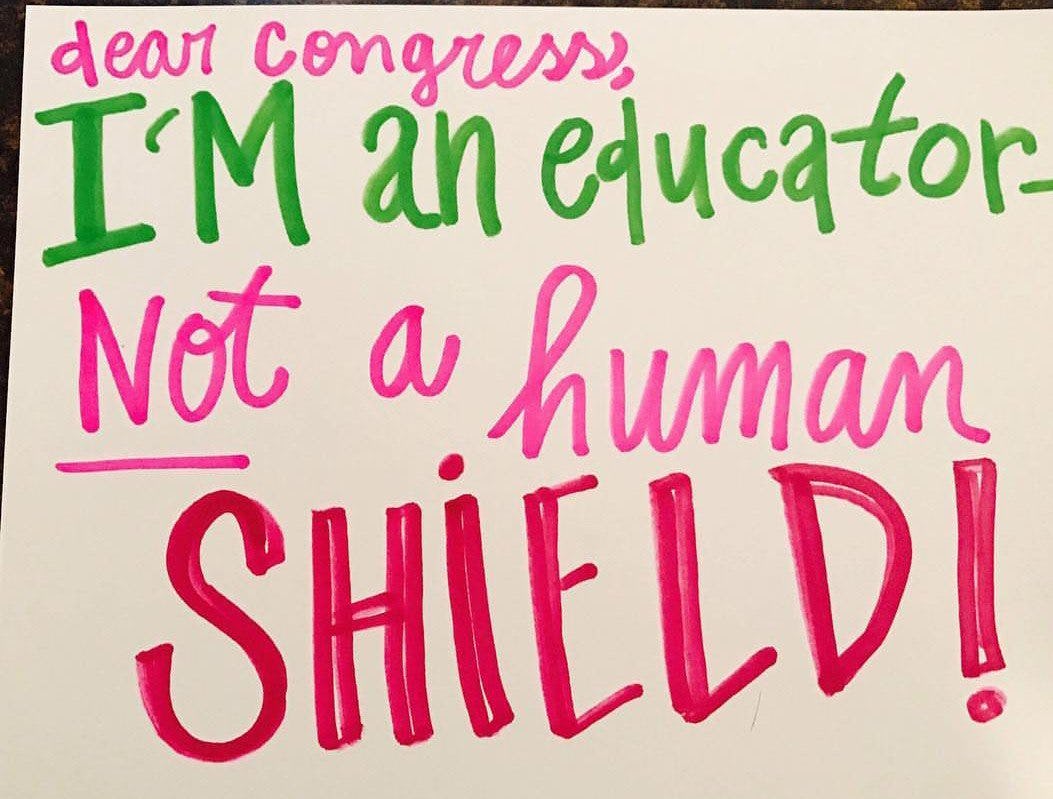 dear congress,
I'M an educator-
Not a human
SHiELD!